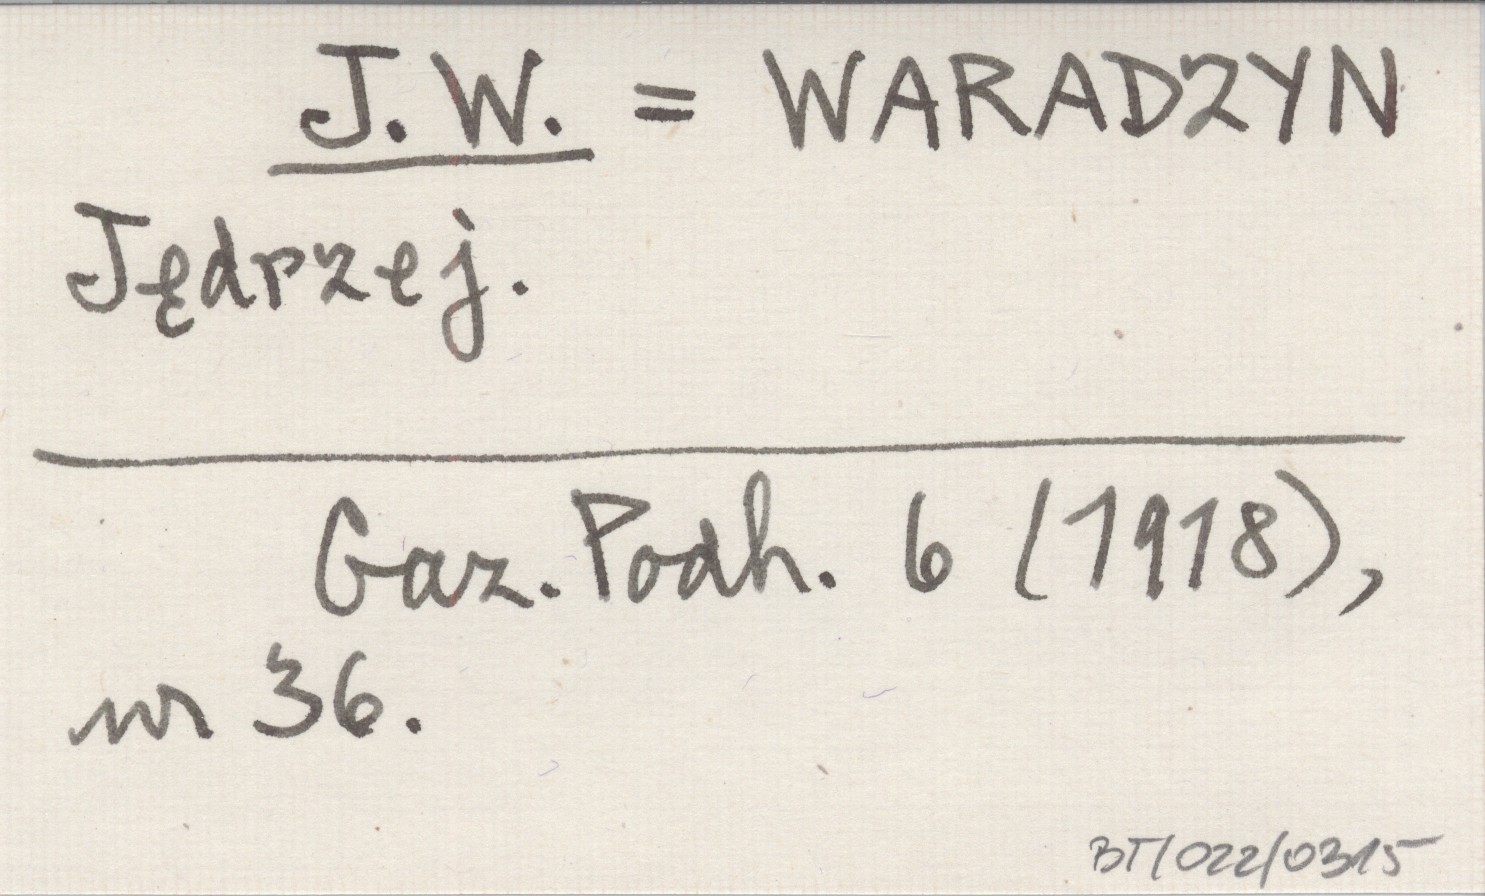 J. W. = WARADZYN
Jędrzej.
Gaz. Podh. 6 (1918),
nr 36.
BT/022/0315